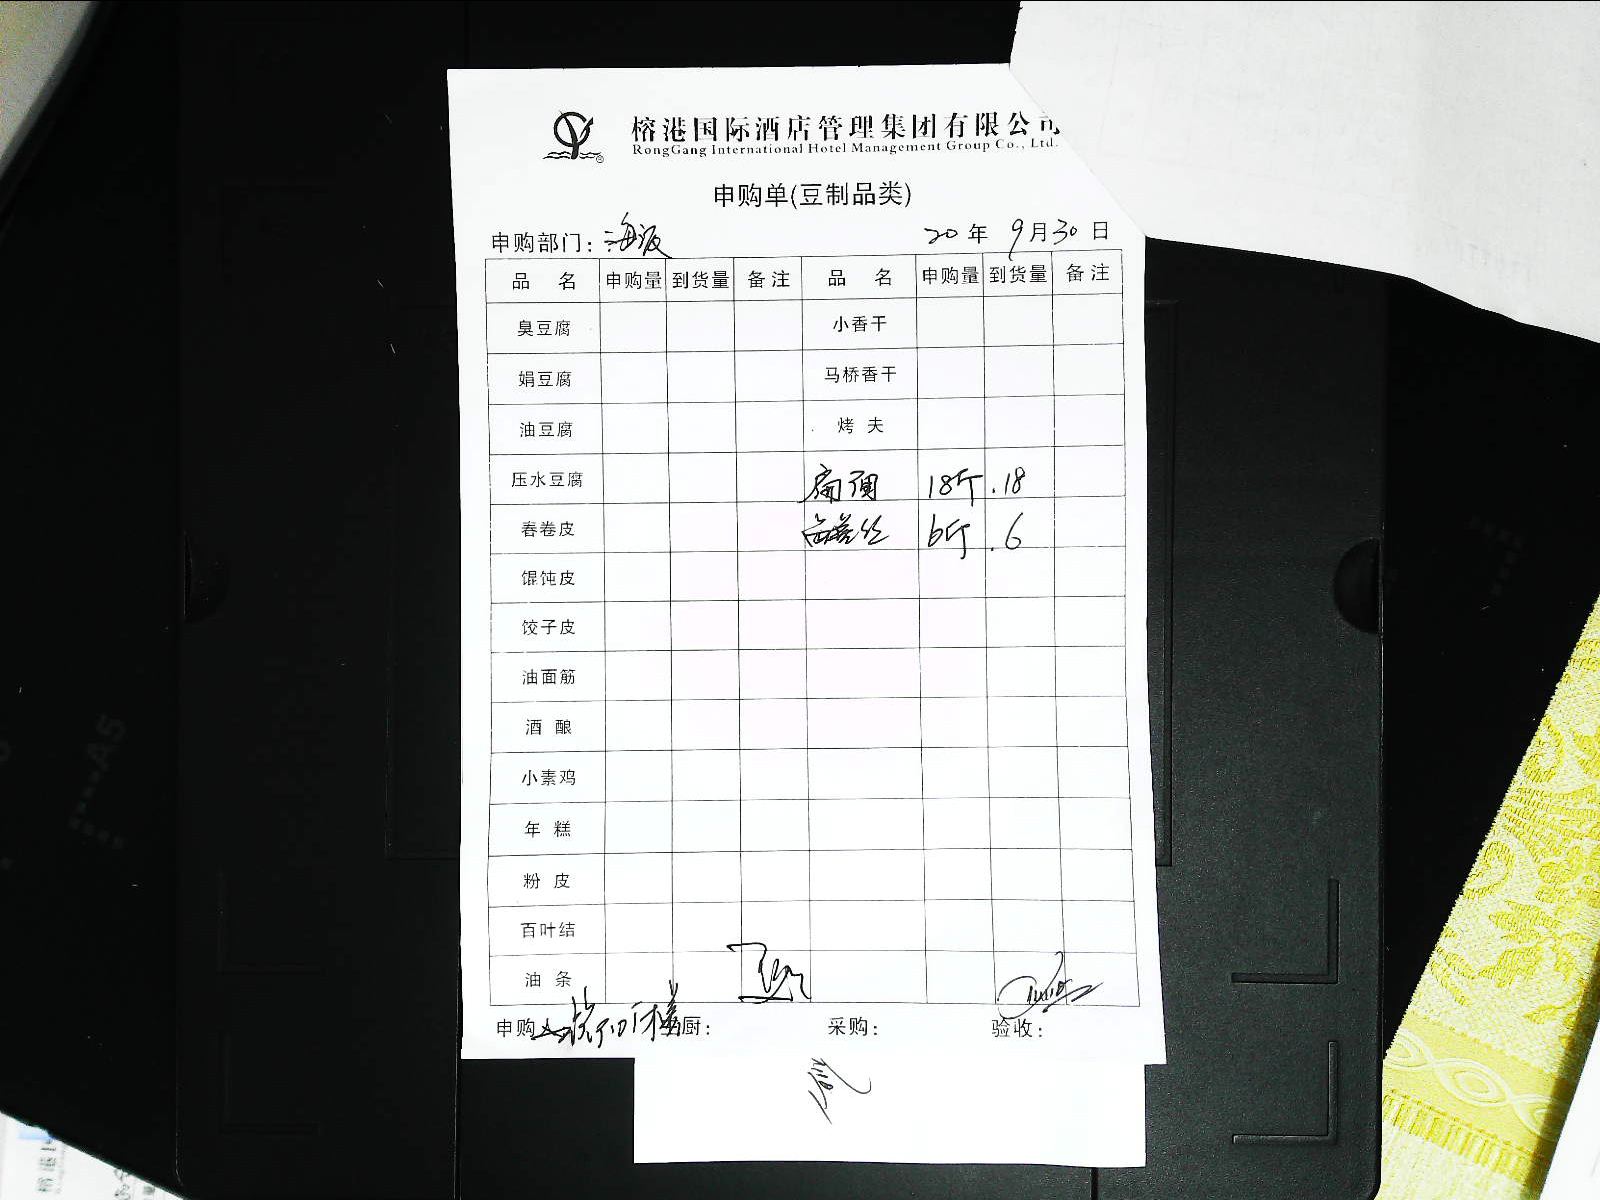 榕港国际酒店管理集团有限公司
RongGang International Hotel Management Group Co., Ltd.
申购单(豆制品类)
申购部门: 海派 20年 9月30日
品 名 申购量 到货量 备注 品 名 申购量 到货量 备注
臭豆腐 小香干
娟豆腐 马桥香干
油豆腐 烤 夫
压水豆腐 18斤 .18
春卷皮 丝 6斤 .6
馄饨皮
饺子皮
油面筋
酒 酿
小素鸡
年 糕
粉 皮
百叶结
油 条
申购 厨: 采购: 验收: